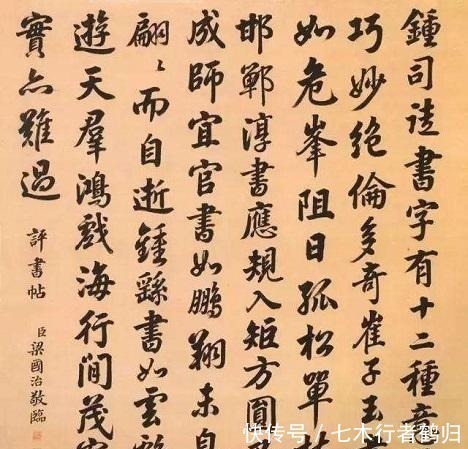 鍾司徒書字有十二種意
巧妙絕倫多奇崔子玉
如危峯阻日孤松單
邯鄲淳書應規入矩方圓
成師宜官書如鵬翔未
翩〻而自逝鍾繇書如雲
遊天羣鴻戲海行間茂
實亦難過
評書帖
臣梁國治敬臨
快传号/七木行者鹤归